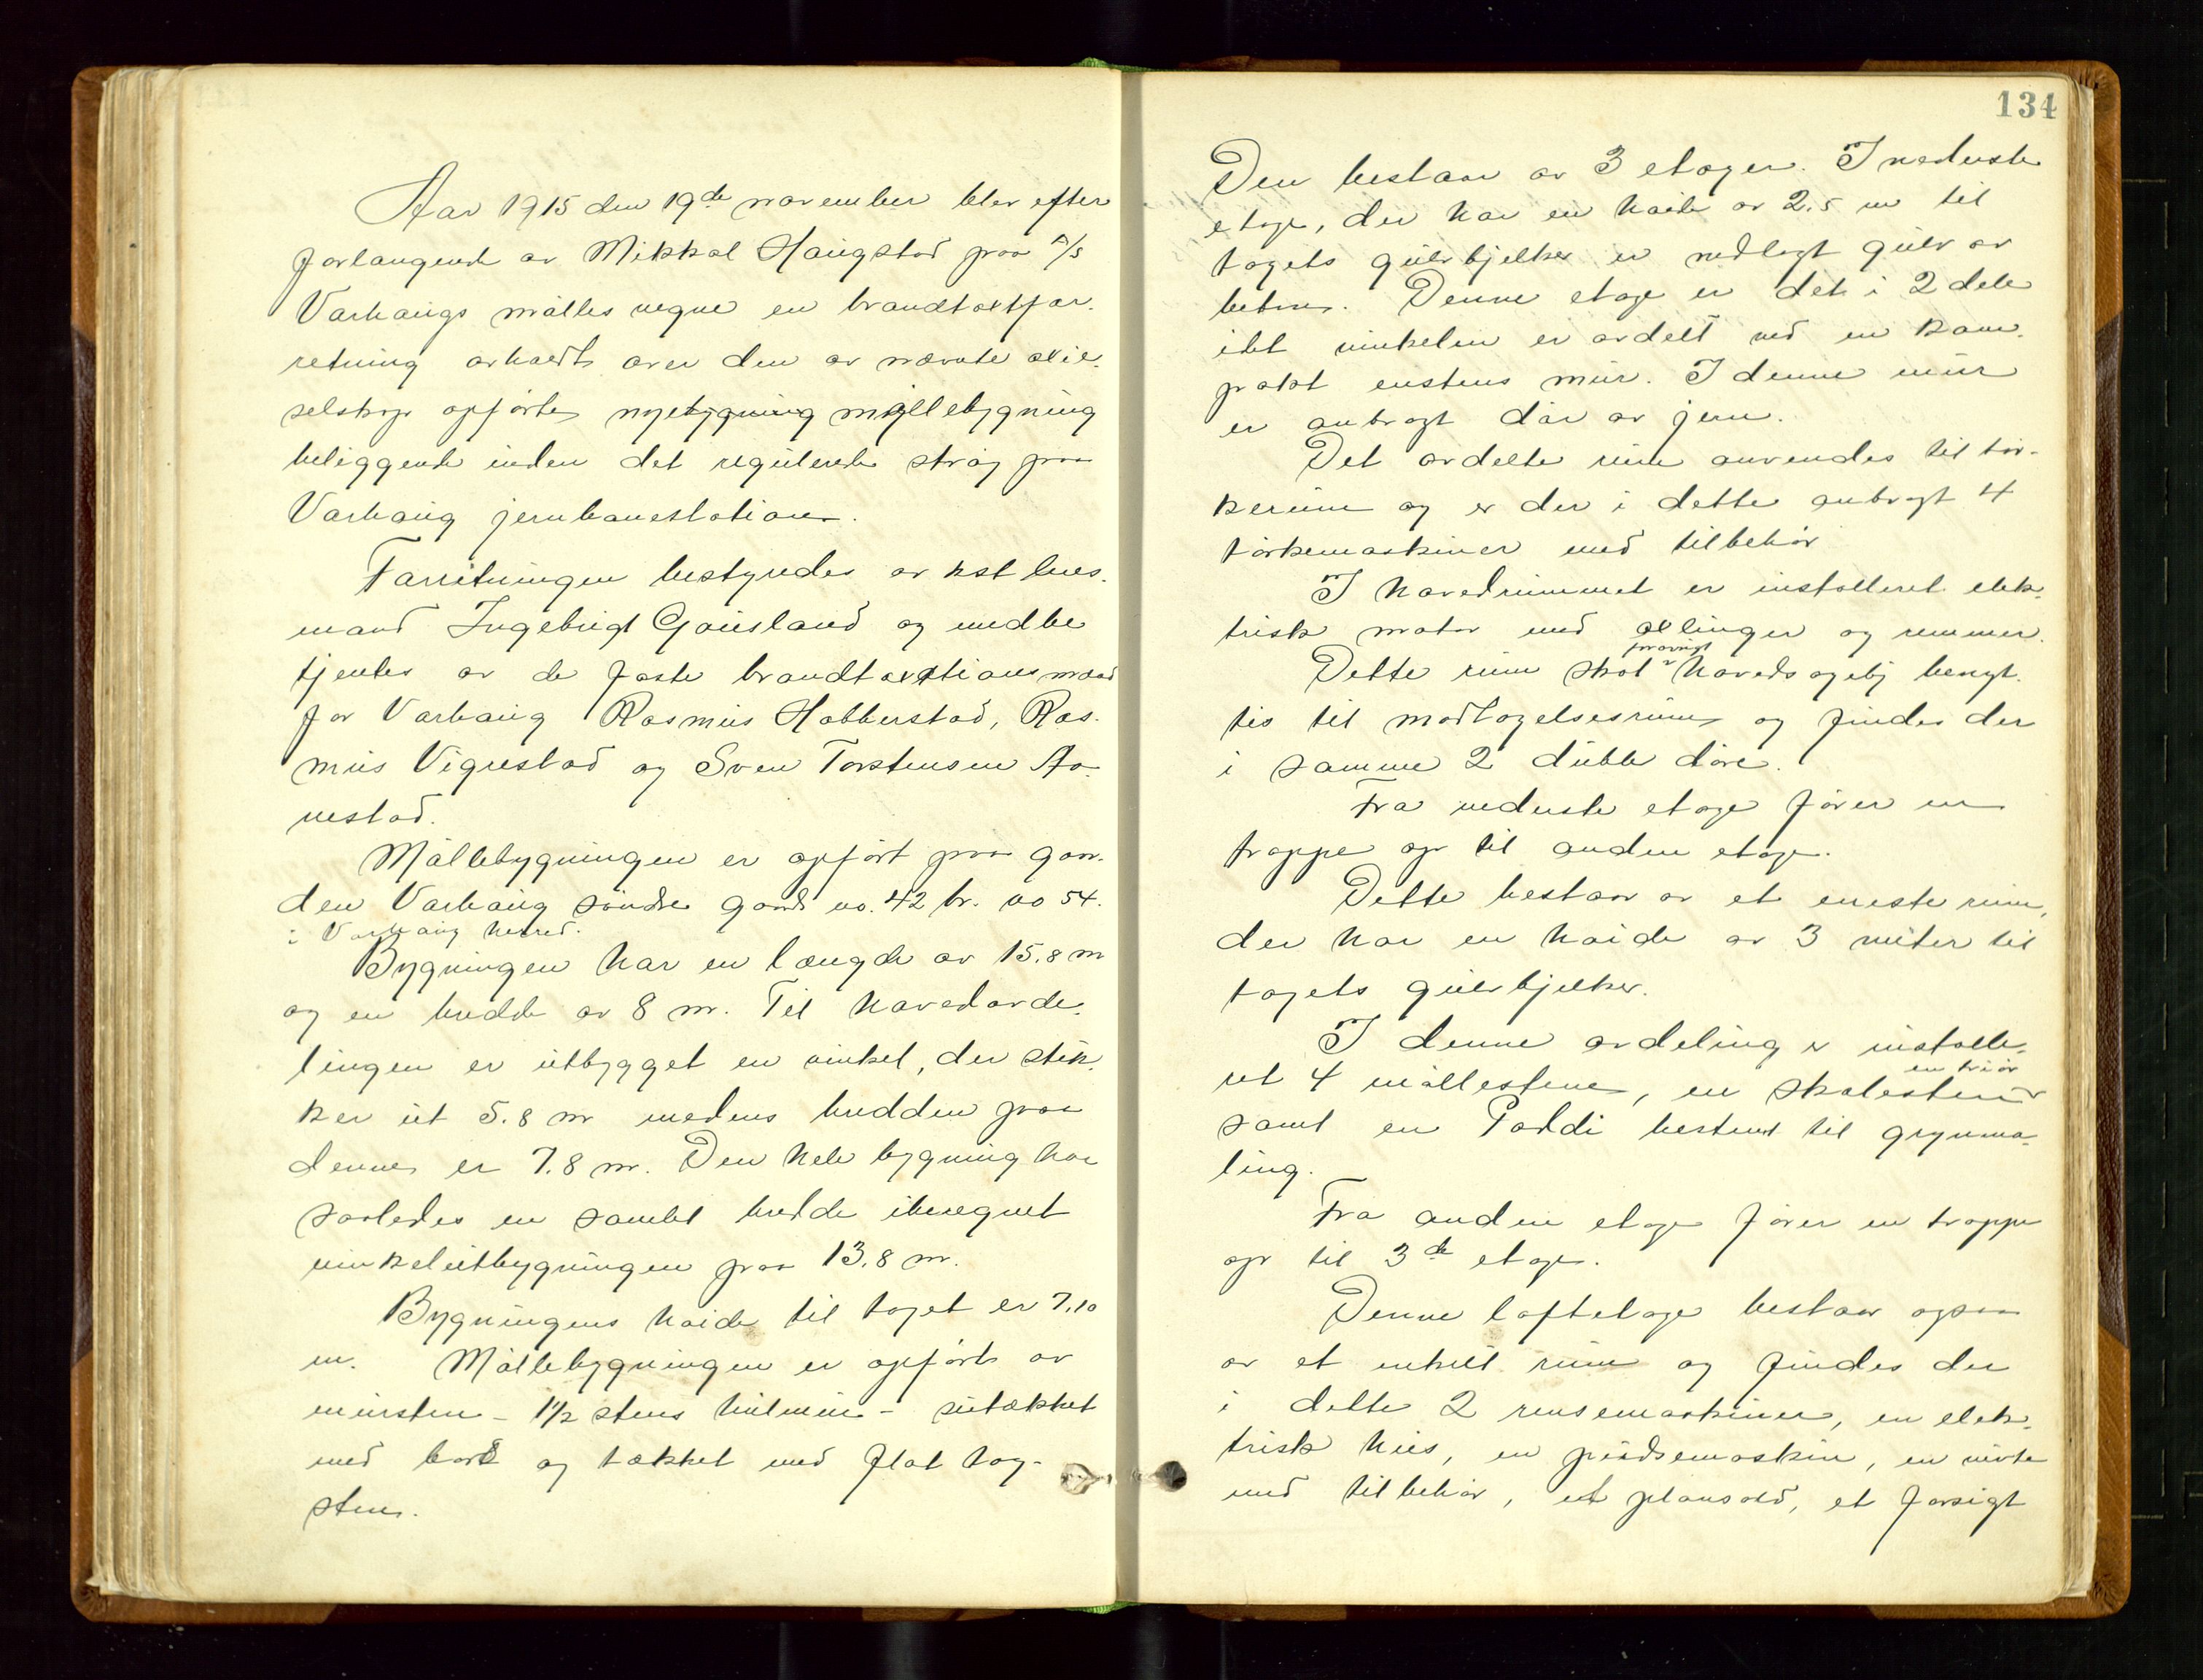 Aar 1915 den 19de november blev efter
forlangende av Mikkal Haugstad paa A/S
Varhaugs mølles vegne en brandtaxtfor-
retning avholdt over den av nævnte aktie-
selskap opførte nyebygning møllebygning
beliggende inden det regulerede strøg paa
Varhaug jernbanestation.
Forretningen bestyredes av kst lens-
mand Ingebrigt Gausland og medbe
tjentes av de faste brandtaxtionsmænd
for Varhaug Rasmus Habberstad, Ras-
mus Vigrestad og Sven Torstensen Aa-
nestad.
Møllebygningen er opført paa gaar-
den Varhaug søndre gards no. 42 br. no 54.
i Varhaug herred.
Bygningen har en længde av 15.8 m
og en bredde av 8 m. Til hovedavde-
lingen er utbygget en vinkel, der stik-
ker ut 5.8 m medens bredden paa
denne er 7.8 m. Den hele bygning har
saaledes en samlet bredde iberegnet
vinkelutbygningen paa 13.8 m.
Bygningens høide til taget er 7.10
m. Møllebygningen er opført av
mursten - 1½ stens hulmur - sutækket
med bord og tækket med flat tag-
sten.
134
Den bestaar av 3 etager. I nederste
etage, der har en høide av 2.5 m til
tagets gulvbjelker er nedlagt gulv av
beton. Denne etage er delt i 2 dele
idet vinkelen er avdelt ved en kom-
pakt enstens mur. I denne mur
er anbragt dør av jern.
Det avdelte rum anvendes til tør-
kerum og er der i dette anbragt 4
tørkemaskiner med tilbehør
I hovedrummet er installeret elek-
trisk motor med axlinger og remmer.
forøvrigt
Dette rum skal hovedsagelig benyt-
tes til modtagelsesrum og findes der
i samme 2 duble døre.
Fra nederste etage fører en
trappe op til anden etage.
Dette bestaar av et eneste rum,
der har en høide av 3 meter til
tagets gulvbjelker.
I denne avdeling er installe-
en triør
ret 4 møllestene, en skalesten
samt en Poddi bestemt til grynma-
ling.
Fra anden etage fører en trappe
op til 3de etage.
Denne loftetage bestaar ogsaa
av et enkelt rum og findes der
i dette 2 rensemaskiner, en elek-
trisk heis, en pudsemaskin, en vivte
med tilbehør, et plansold, et forsigt